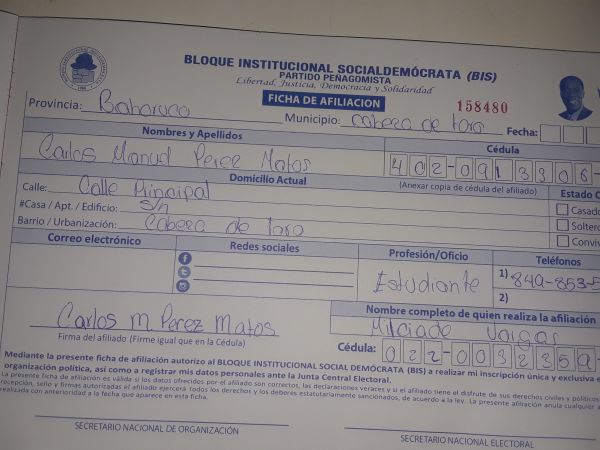 BLOQUE INSTITUCIONAL SOCIALDEMÓCRATA (BIS)
PARTIDO PEÑAGOMISTA
Libertad, Justicia, Democracia y Solidaridad
FICHA DE AFILIACION
158480
Provincia: Bahoruco Municipio: cabeza de toro Fecha:
Nombres y Apellidos Cédula
Carlos Manuel Perez Matos 402-0913306-
Domicilio Actual (Anexar copia de cédula del afiliado) Estado C
Calle: Calle Principal Casado
#Casa / Apt. / Edificio: S/n Soltero
Barrio / Urbanización: Cabeza de toro Conviv
Correo electrónico Redes sociales Profesión/Oficio Teléfonos
Estudiante 1) 849-853-5
2)
Nombre completo de quien realiza la afiliación
Carlos M. Perez Matos Milciade Vargas
Firma del afiliado (Firme igual que en la Cédula) Cédula: 022-0032259-
Mediante la presente ficha de afiliación autorizo al BLOQUE INSTITUCIONAL SOCIAL DEMÓCRATA (BIS) a realizar mi inscripción única y exclusiva e
organización política, así como a registrar mis datos personales ante la Junta Central Electoral.
La presente ficha de afiliación es válida si los datos ofrecidos por el afiliado son correctos, las declaraciones veraces y si el afiliado tiene el disfrute de sus derechos civiles y políticos
recepción, sello y firmas autorizadas el afiliado ejercerá todos los derechos y los deberes estatutariamente sancionados, de acuerdo a la ley. La presente afiliación anula cualquier a
realizada con anterioridad a la fecha que aparece en esta ficha.
SECRETARIO NACIONAL DE ORGANIZACIÓN SECRETARIO NACIONAL ELECTORAL